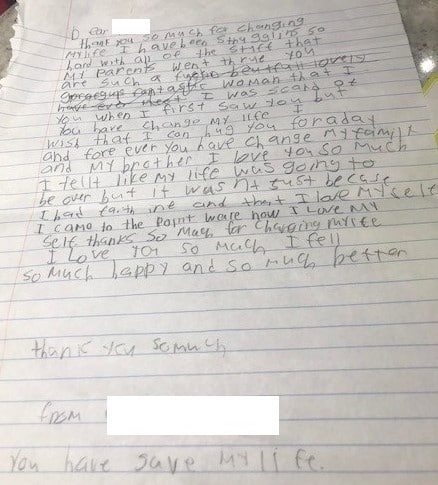 Dear
thank you so much for changing
my life I have been struggling so
hard with all of the stuff that
my parents went thrue you
are such a beutfull lovely
Gorgegus fantastic woman that I
have ever meet I was scard of
you when I first saw you but
You have change my life I
wish that I can hug you for a day
and fore ever you have change my family
and my brother I love you so much
I fellt like my life was going to
be over but it wasnt Just becase
I had faith in me and that I love my self
I came to the point were now I Love my
self thanks so much for changing my life
I Love you so much I fell
so much happy and so much better
thank you so much
from
You have save my life.